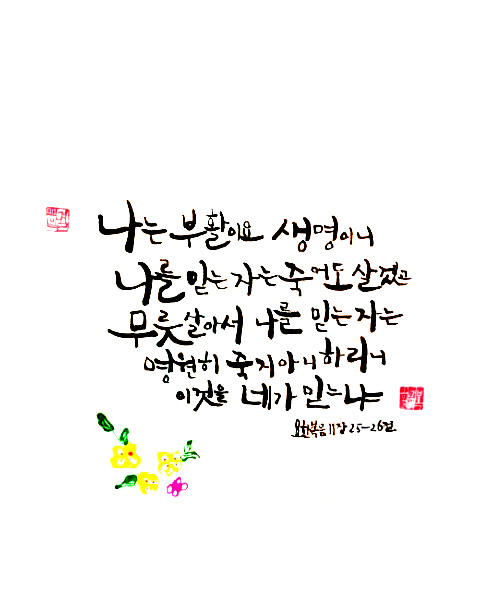 나는 부활이요 생명이니
나를 믿는 자는 죽어도 살겠고
무릇 살아서 나를 믿는 자는
영원히 죽지 아니하리니
이것을 네가 믿느냐
요한복음 11장 25-26절